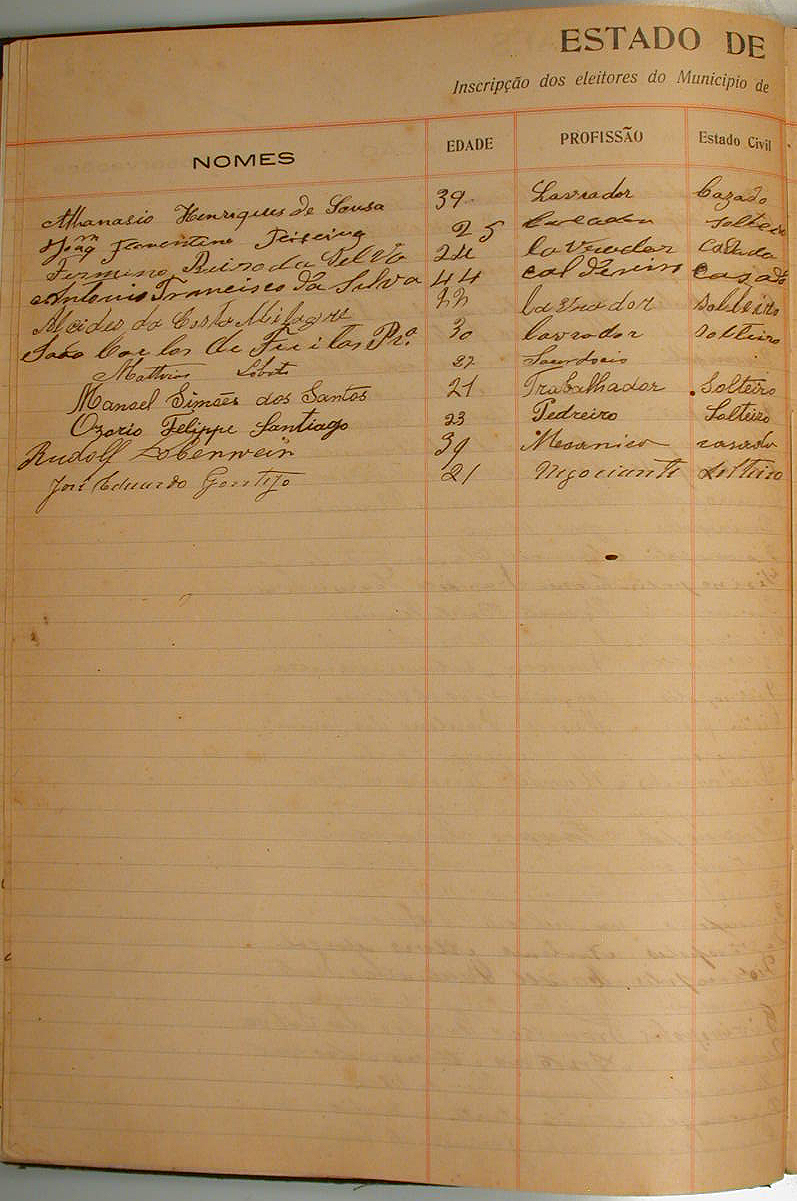 ESTADO DE
Inscripção dos eleitores do Municipio de
NOMES EDADE PROFISSÃO Estado Civil
Athanasio Henriques de Sousa 39 Lavrador Cazado
Florentino Teixeira 25 solteiro
Firmino da Silva 24 lavrador casado
Antonio Francisco da Silva 44 cazado
Alcides da Costa Milagre 22 lavrador solteiro
João Carlos de Freitas Prº 30 lavrador solteiro
Mathias Lobato 27 Sacerdocio
Manoel Simões dos Santos 21 Trabalhador Solteiro
Ozorio Felippe Santiago 23 Pedreiro Solteiro
Rudolf Lobenwein 39 Mecanico casado
José Eduardo Gontijo 21 Negociante Solteiro